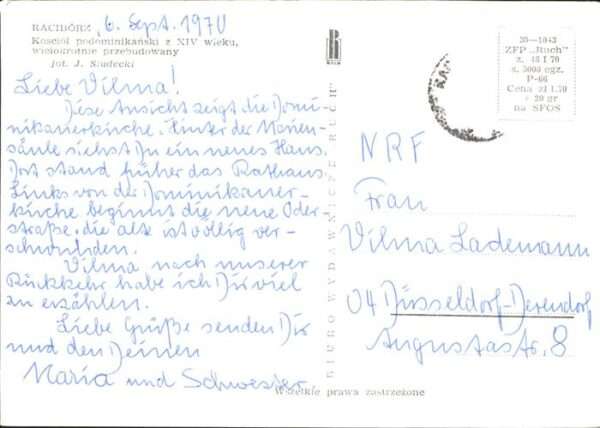 RACIBÓRZ
6. Sept. 1970
Kościół podominikański z XIV wieku,
wielokrotnie przebudowany
fot. J. Siudecki
Liebe Vilma!
Diese Ansicht zeigt die Domi-
nikanerkirche. Hinter der Marien-
säule siehst Du ein neues Haus.
Dort stand früher das Rathaus.
Links von der Dominikaner-
kirche beginnt die neue Oder-
straße, die alte ist völlig ver-
schwunden.
Vilma nach unserer
Rückkehr habe ich Dir viel
zu erzählen.
Liebe Grüße senden Dir
und den Deinen
Maria und Schwester
BIURO WYDAWNICZE „RUCH"
R
35—1043
ZFP „Ruch"
z. 48 I 70
s. 5000 egz.
P-66
Cena zł 1.70
+ 20 gr
na SFOS
NRF
Frau
Vilma Lademann
04 Düsseldorf-Derendorf
Augustastr. 8
Wszelkie prawa zastrzeżone